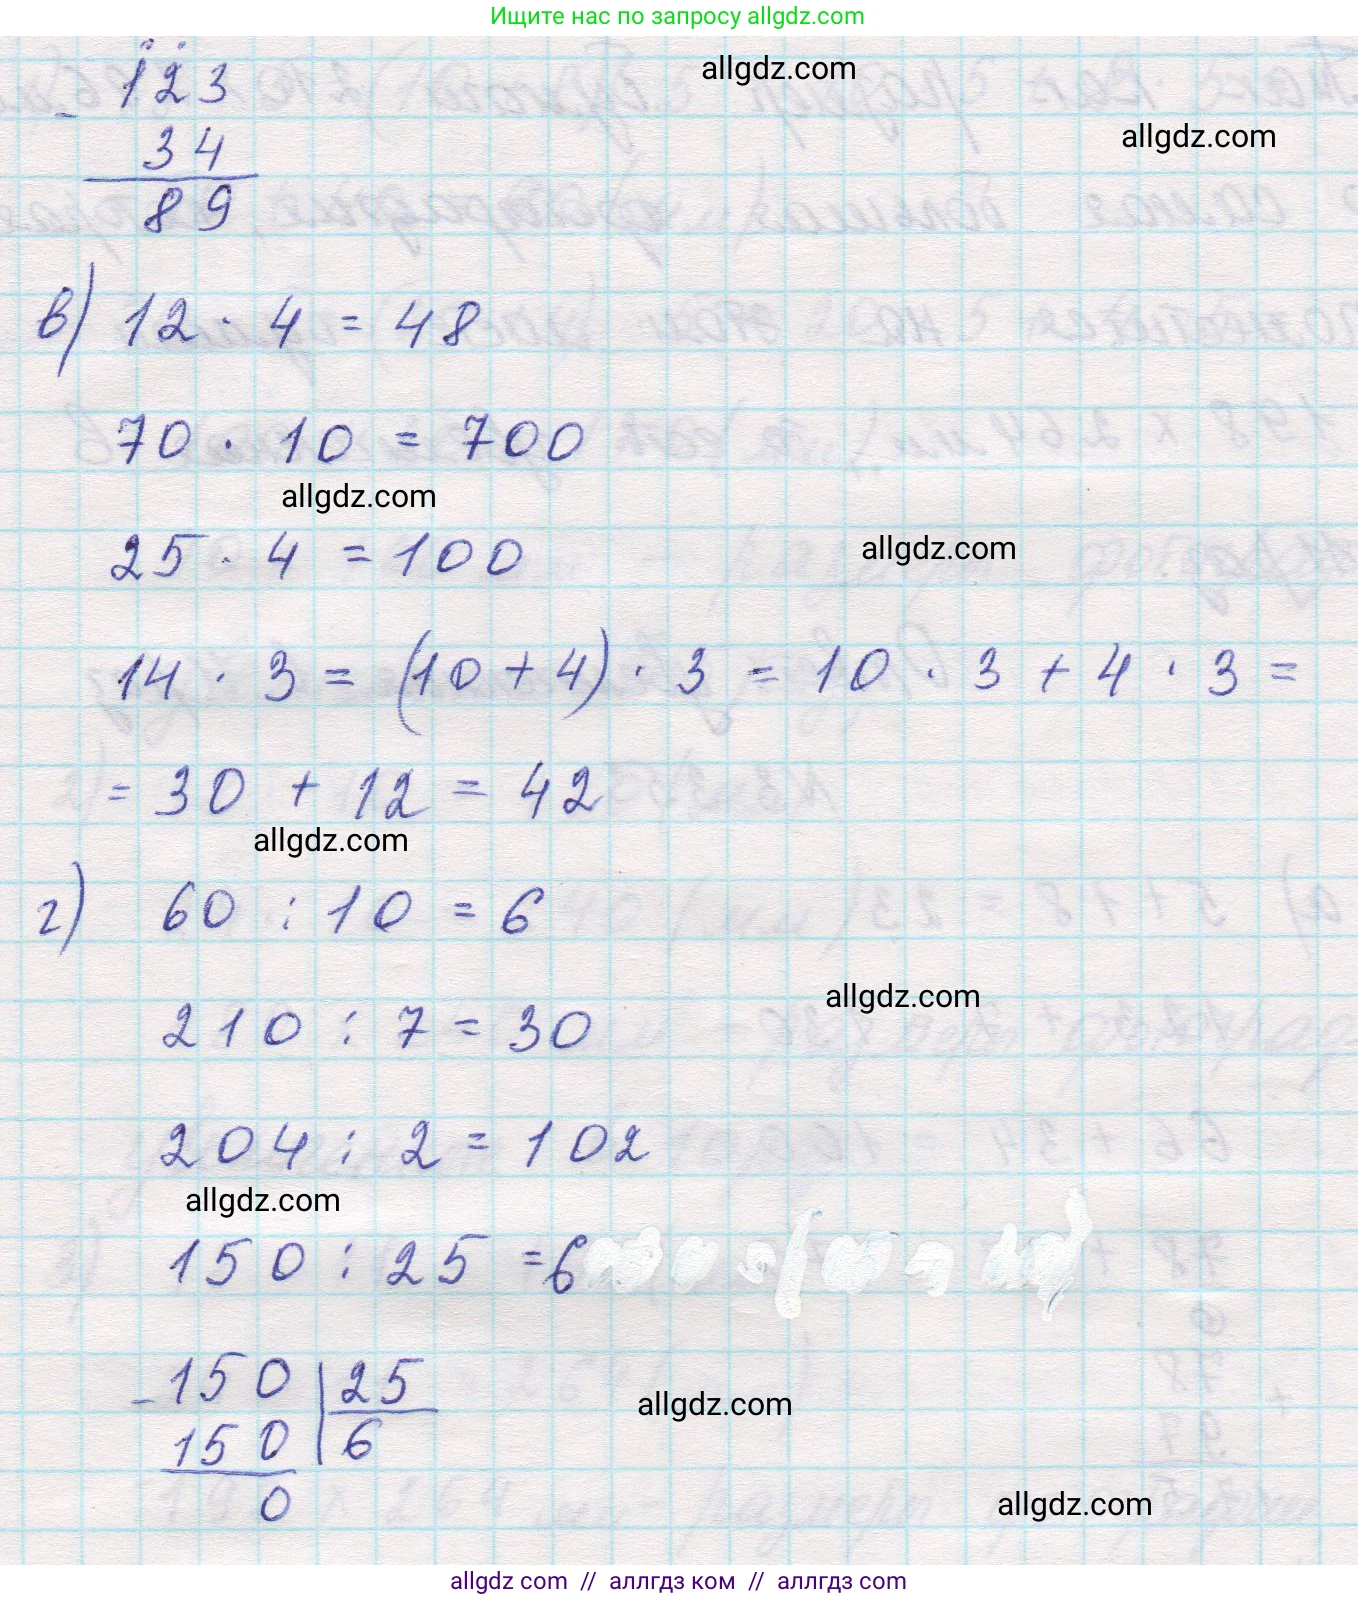 Ищите нас по запросу allgdz.com
123
allgdz.com
allgdz.com
- 34
89
в) 12 · 4 = 48
70 · 10 = 700
allgdz.com
25 · 4 = 100
allgdz.com
14 · 3 = (10 + 4) · 3 = 10 · 3 + 4 · 3 =
= 30 + 12 = 42
allgdz.com
г) 60 : 10 = 6
allgdz.com
210 : 7 = 30
204 : 2 = 102
allgdz.com
150 : 25 = 6
- 150 | 25
allgdz.com
150 | 6
0
allgdz.com
allgdz com // аллгдз ком // аллгдз com